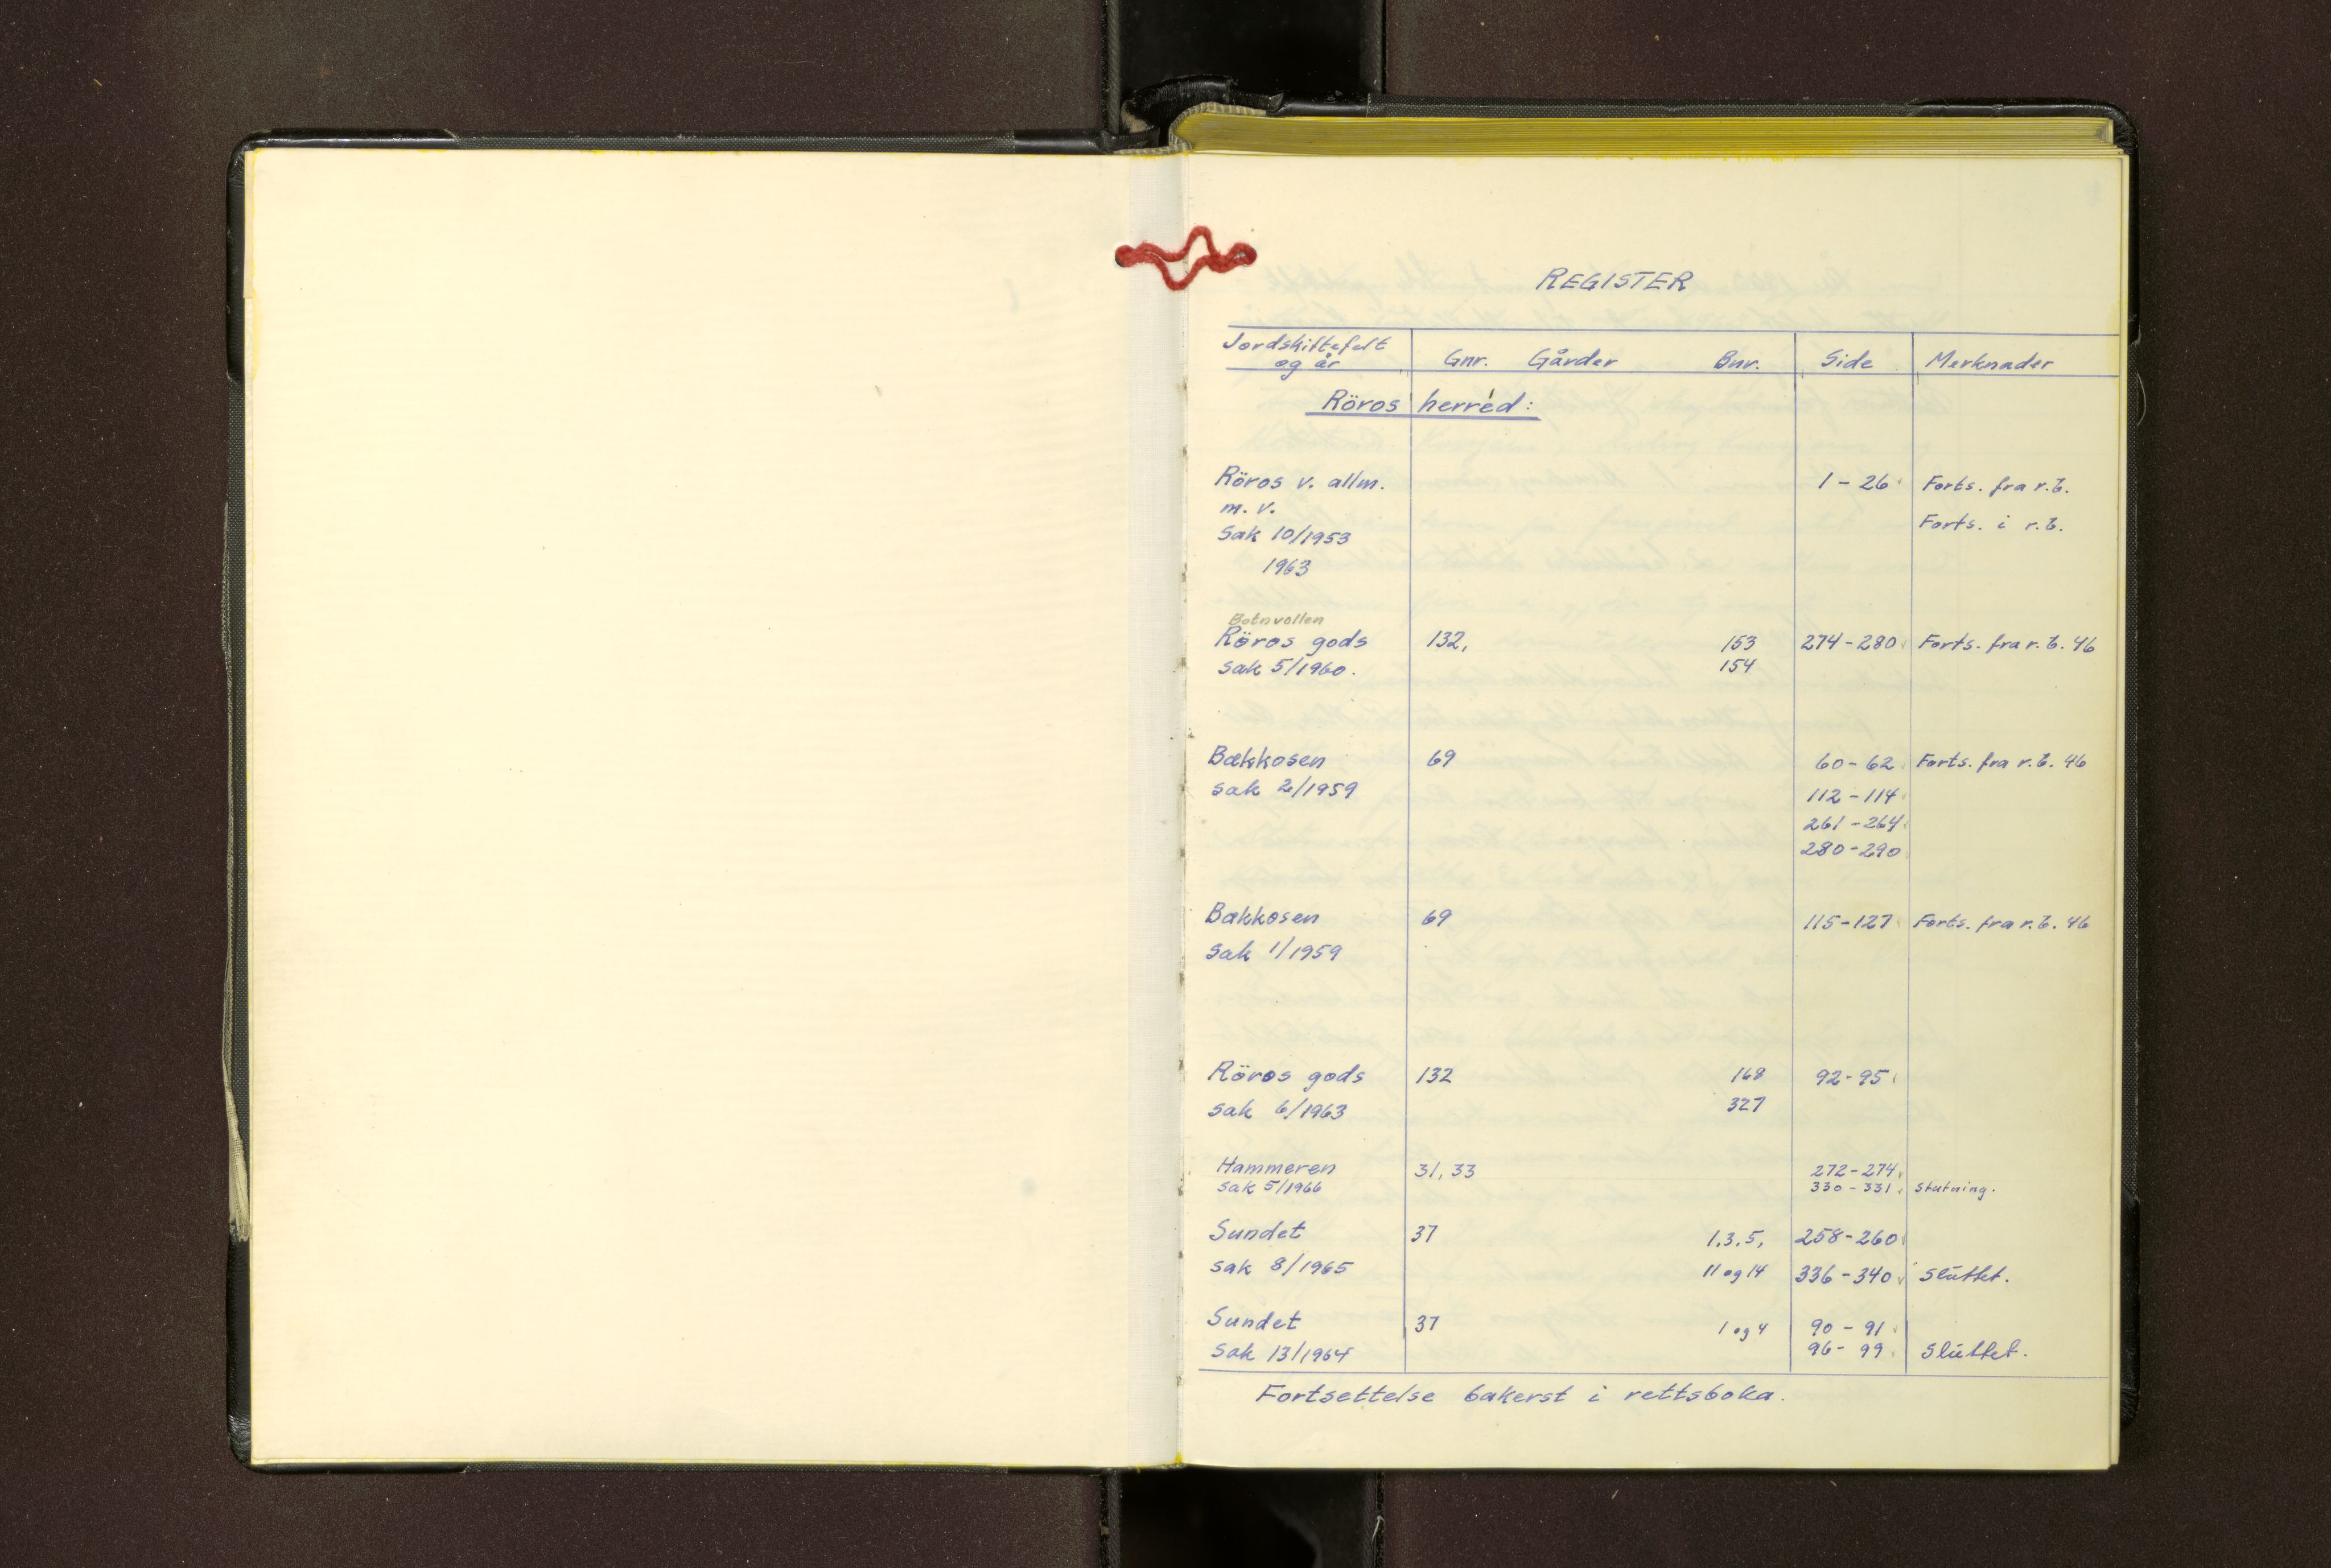 REGISTER
Jordskiftefelt og år Gnr. Gårder Bnr. Side Merknader
Röros herred:
Röros v. allm. 1 - 26 Forts. fra r.b.
m. v. Forts. i r.b.
Sak 10/1953
1963
Botnvollen
Röros gods 132, 153 274-280 Forts. fra r.b. 46
Sak 5/1960. 154
Bækkosen 69 60-62 Forts. fra r.b. 46
sak 2/1959 112-114
261-264
280-290
Bækkosen 69 115-127 Forts. fra r.b. 46
Sak 1/1959
Röros gods 132 168 92-95
sak 6/1963 327
Hammeren 31, 33 272-274
sak 5/1966 330-331 Slutning.
Sundet 37 1.3.5, 258-260
sak 8/1965 11 og 14 336-340 Sluttet.
Sundet 37 1 og 4 90 - 91
Sak 13/1964 96- 99 Sluttet.
Fortsettelse bakerst i rettsboka.